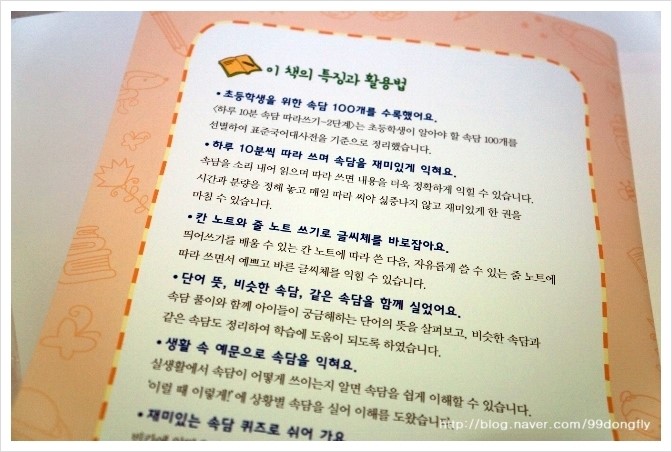 이 책의 특징과 활용법
• 초등학생을 위한 속담 100개를 수록했어요.
〈하루 10분 속담 따라쓰기-2단계〉는 초등학생이 알아야 할 속담 100개를
선별하여 표준국어대사전을 기준으로 정리했습니다.
• 하루 10분씩 따라 쓰며 속담을 재미있게 익혀요.
속담을 소리 내어 읽으며 따라 쓰면 내용을 더욱 정확하게 익힐 수 있습니다.
시간과 분량을 정해 놓고 매일 따라 써야 싫증나지 않고 재미있게 한 권을
마칠 수 있습니다.
• 칸 노트와 줄 노트 쓰기로 글씨체를 바로잡아요.
띄어쓰기를 배울 수 있는 칸 노트에 따라 쓴 다음, 자유롭게 쓸 수 있는 줄 노트에
따라 쓰면서 예쁘고 바른 글씨체를 익힐 수 있습니다.
• 단어 뜻, 비슷한 속담, 같은 속담을 함께 실었어요.
속담 풀이와 함께 아이들이 궁금해하는 단어의 뜻을 살펴보고, 비슷한 속담과
같은 속담도 정리하여 학습에 도움이 되도록 하였습니다.
• 생활 속 예문으로 속담을 익혀요.
실생활에서 속담이 어떻게 쓰이는지 알면 속담을 쉽게 이해할 수 있습니다.
'이럴 때 이렇게!'에 상황별 속담을 실어 이해를 도왔습니다.
• 재미있는 속담 퀴즈로 쉬어 가요
http://blog.naver.com/99dongfly